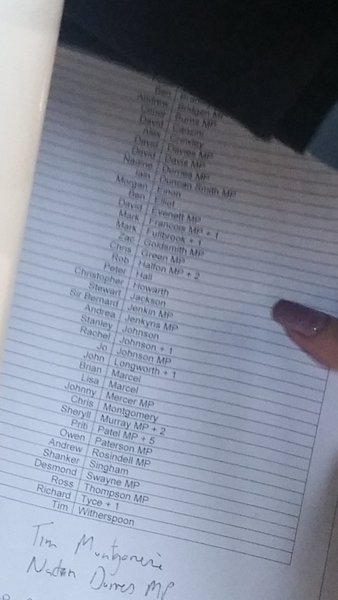 Ben
Andrew Bridgen MP
Conor Burns MP
David Canzini
Alex Crowley
David Davies MP
David Davis MP
Nadine Dorries MP
Iain Duncan Smith MP
Morgan Einon
Ben Elliot
David Evenett MP
Mark Francois MP + 1
Mark Fullbrook + 1
Zac Goldsmith MP
Chris Green MP
Rob Halfon MP + 2
Peter Hall
Christopher Howarth
Stewart Jackson
Sir Bernard Jenkin MP
Andrea Jenkyns MP
Stanley Johnson
Rachel Johnson + 1
Jo Johnson MP
John Longworth + 1
Brian Marcel
Lisa Marcel
Johnny Mercer MP
Chris Montgomery
Sheryll Murray MP + 2
Priti Patel MP + 5
Owen Paterson MP
Andrew Rosindell MP
Shanker Singham
Desmond Swayne MP
Ross Thompson MP
Richard Tyce + 1
Tim Witherspoon
Tim Montgomerie
MP